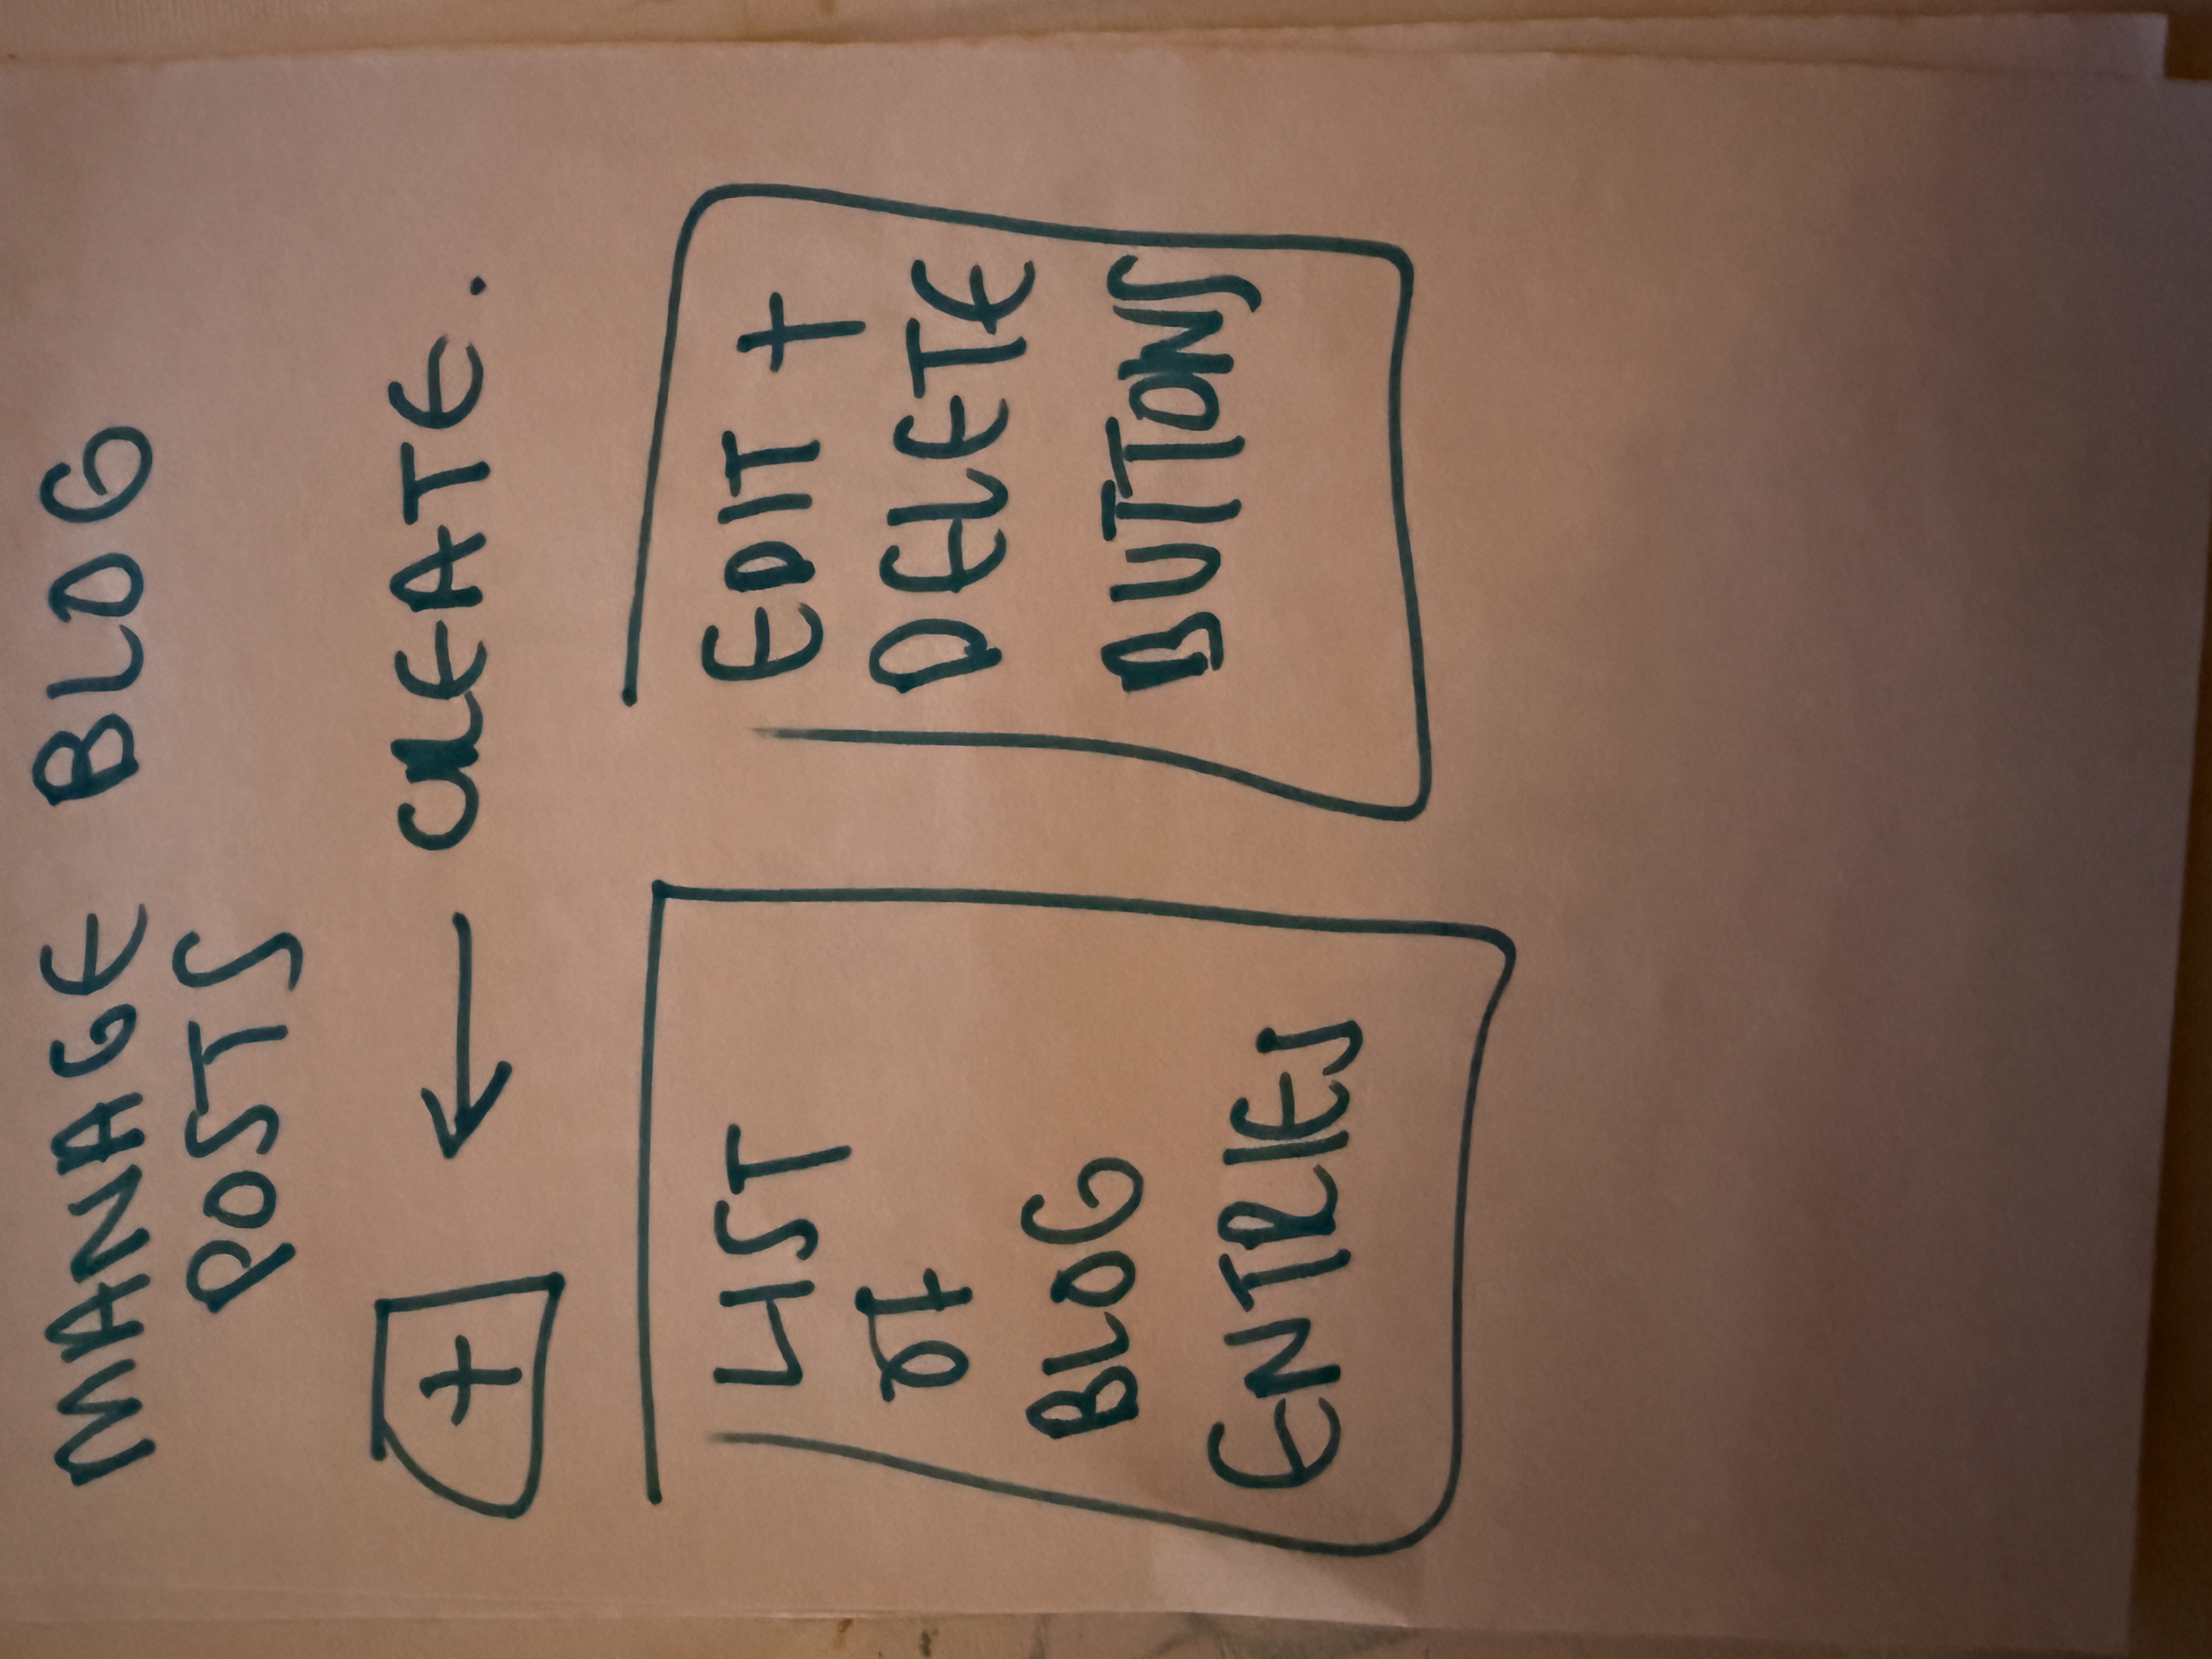 MANAGE BLOG
POSTS
+ ← CREATE.
LIST
OF
BLOG
ENTRIES
EDIT +
DELETE
BUTTONS